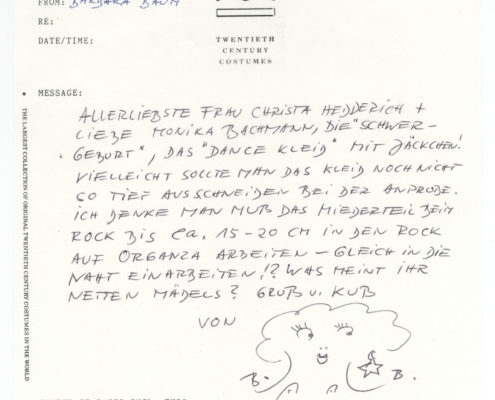 FROM: BARBARA BAUM
RE:
DATE/TIME:
TWENTIETH
CENTURY
COSTUMES
• MESSAGE:
ALLERLIEBSTE FRAU CHRISTA HEDDERICH +
LIEBE MONIKA BACHMANN, DIE "SCHWER-
GEBURT", DAS "DANCE KLEID" MIT JÄCKCHEN!
VIELLEICHT SOLLTE MAN DAS KLEID NOCH NICHT
SO TIEF AUSSCHNEIDEN BEI DER ANPROBE.
ICH DENKE MAN MUß DAS MIEDERTEIL BEIM
ROCK BIS CA. 15-20 CM IN DEN ROCK
AUF ORGANZA ARBEITEN – GLEICH IN DIE
NAHT EINARBEITEN!? WAS MEINT IHR
NETTEN MÄDELS? GRUß U. KUß
VON
B. B.
THE LARGEST COLLECTION OF ORIGINAL TWENTIETH CENTURY COSTUMES IN THE WORLD